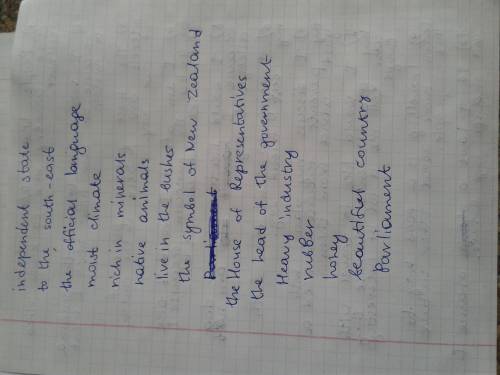 independent state
to the south-east
the official language
moist climate
rich in minerals
native animals
live in the bushes
the symbol of New Zealand
the House of Representatives
the head of the government
Heavy industry
rubber
honey
beautiful country
Parliament